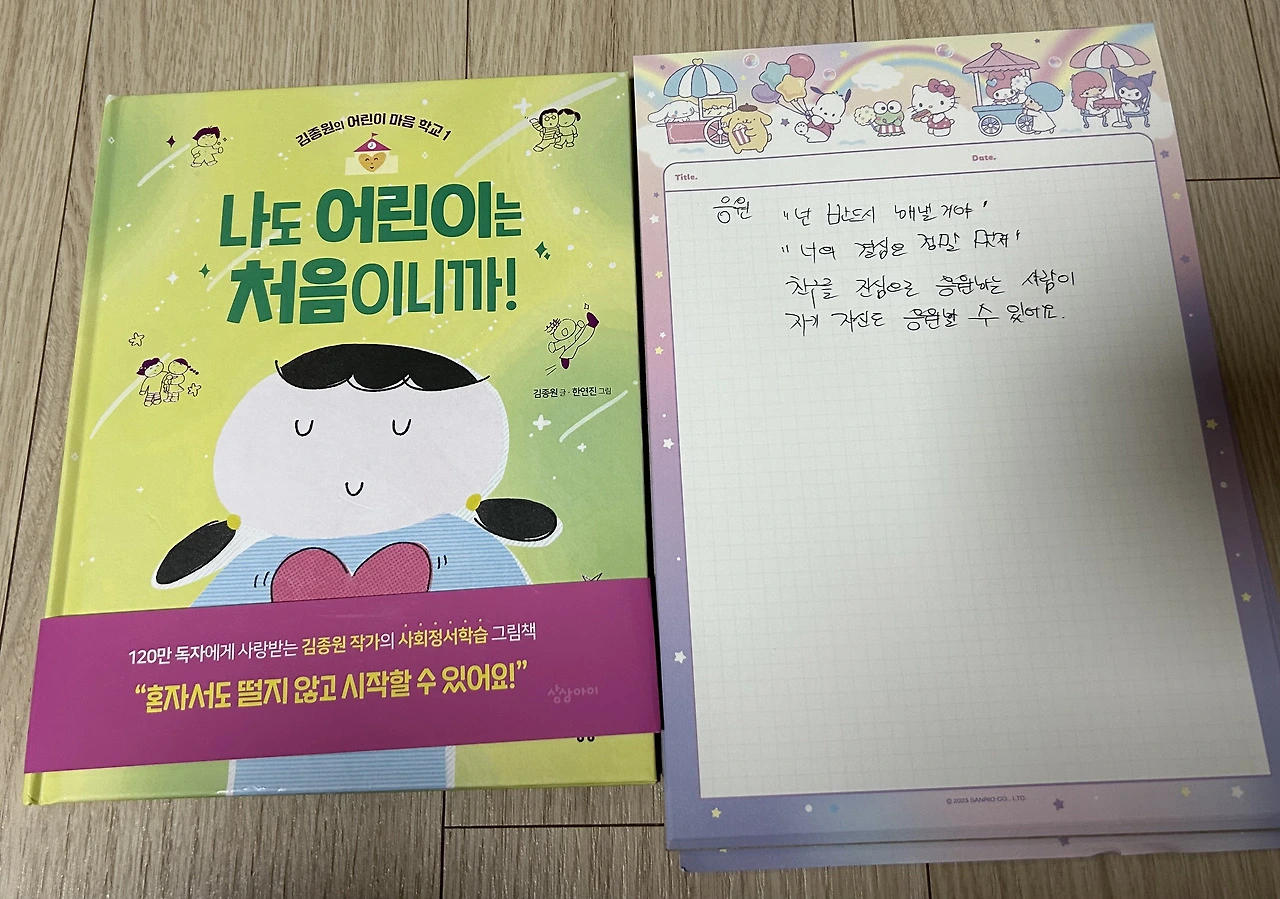 김종원의 어린이 마음 학교 1
나도 어린이는
처음이니까!
김종원 글 · 한연진 그림
120만 독자에게 사랑받는 김종원 작가의 사회정서학습 그림책
“혼자서도 떨지 않고 시작할 수 있어요!”
상상아이
Title.
Date.
응원 "넌 반드시 해낼거야"
"너의 결심은 정말 멋져"
친구를 진심으로 응원하는 사람이
자기 자신도 응원할 수 있어요.
© 2023 SANRIO CO., LTD.